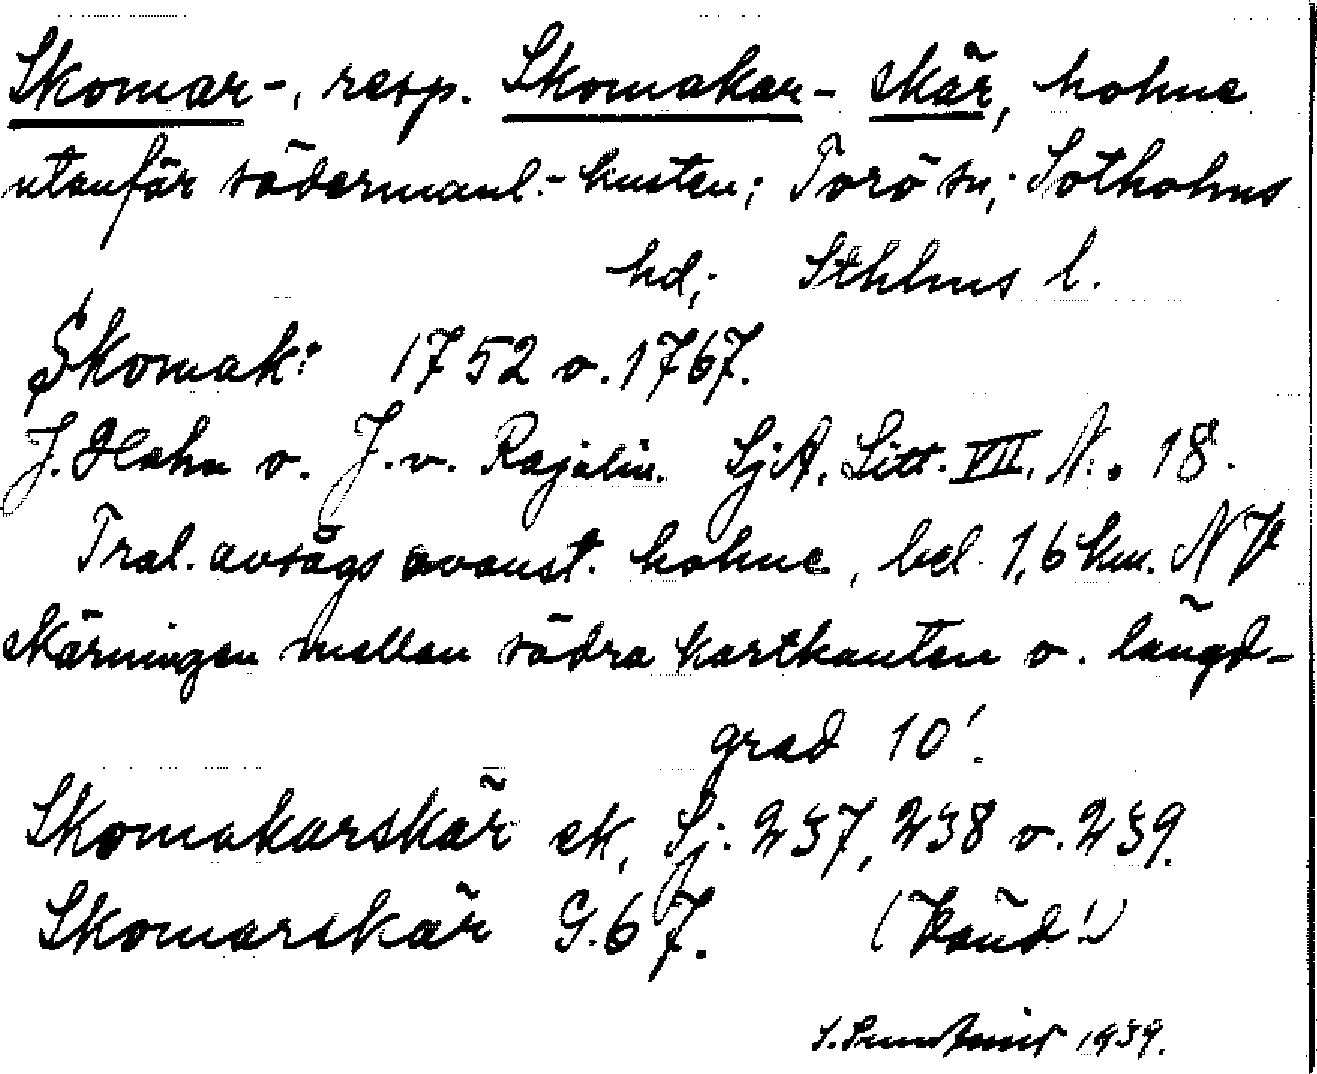 Skomar-, resp. Skomakar- skär, holme
utanför södermanl.-kusten; Torö sn; Sotholms
hd; Sthlms l.
Skomak: 1752 o. 1767.
J. Hahn o. J. v. Rajalin. SjA. Litt. VII. N. 18.
Tral. avsågs ovanst. holme, bel. 1,6 km. NV
skärningen mellan södra kartkanten o. längd-
grad 10'.
Skomakarskär ek, Sj: 237, 238 o. 239.
Skomarskär G. 67. (Vänd!)
1939.